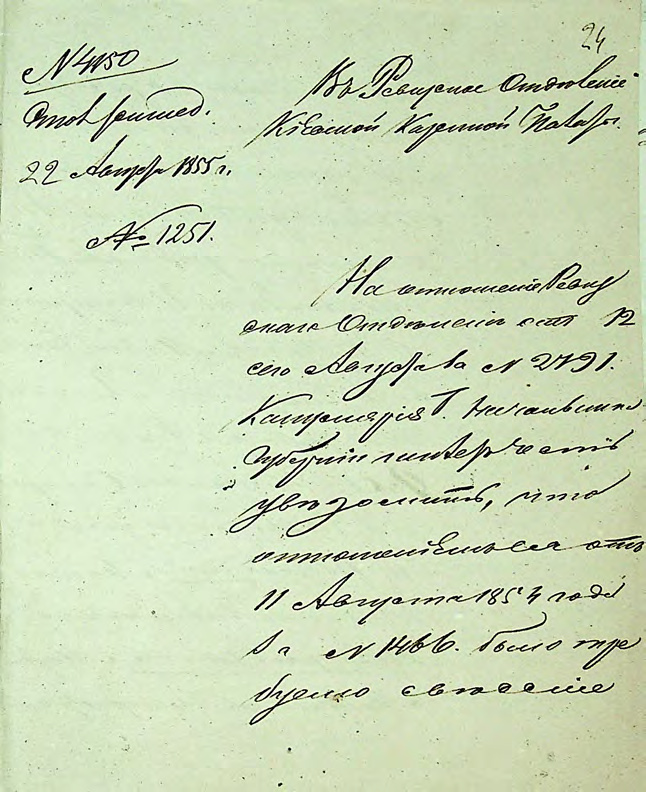 24
N 4150
22 Августа 1855 г.
№ 1251.
Въ Ревизское Отдѣленіе
Кіевской Казенной Палаты.
На отношеніе Ревиз
скаго Отдѣленія отъ 12
сего Августа за N 2791.
Канцелярія Г. Начальника
Губерніи имѣетъ честь
увѣдомить, что
отношеніемъ ея отъ
11 Августа 1854 года
за N 1466. было тре
буемо свѣденіе